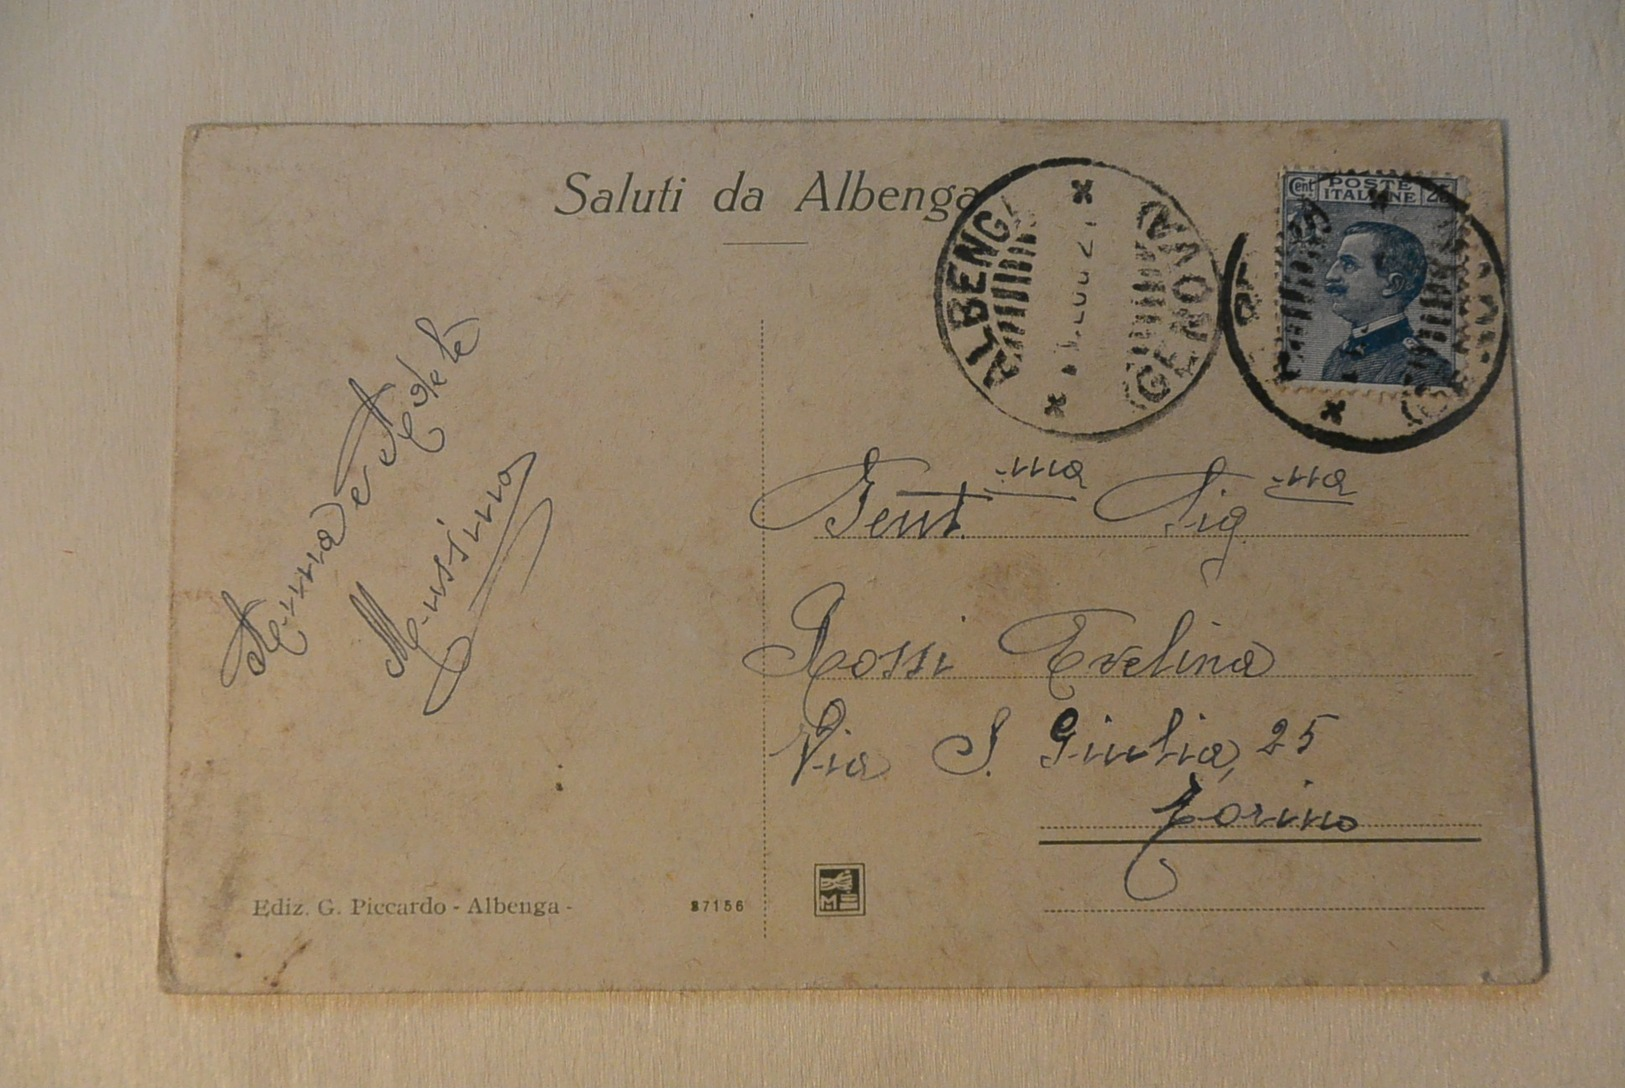 Saluti da Albenga
ALBENGA
GENOVA
Cent. POSTE 25
ITALIANE
Anna e Adele
Mussino
Gent.ma Sig.na
Rossi Evelina
Via S. Giulia, 25
Torino
Ediz. G. Piccardo - Albenga -
87156
ME